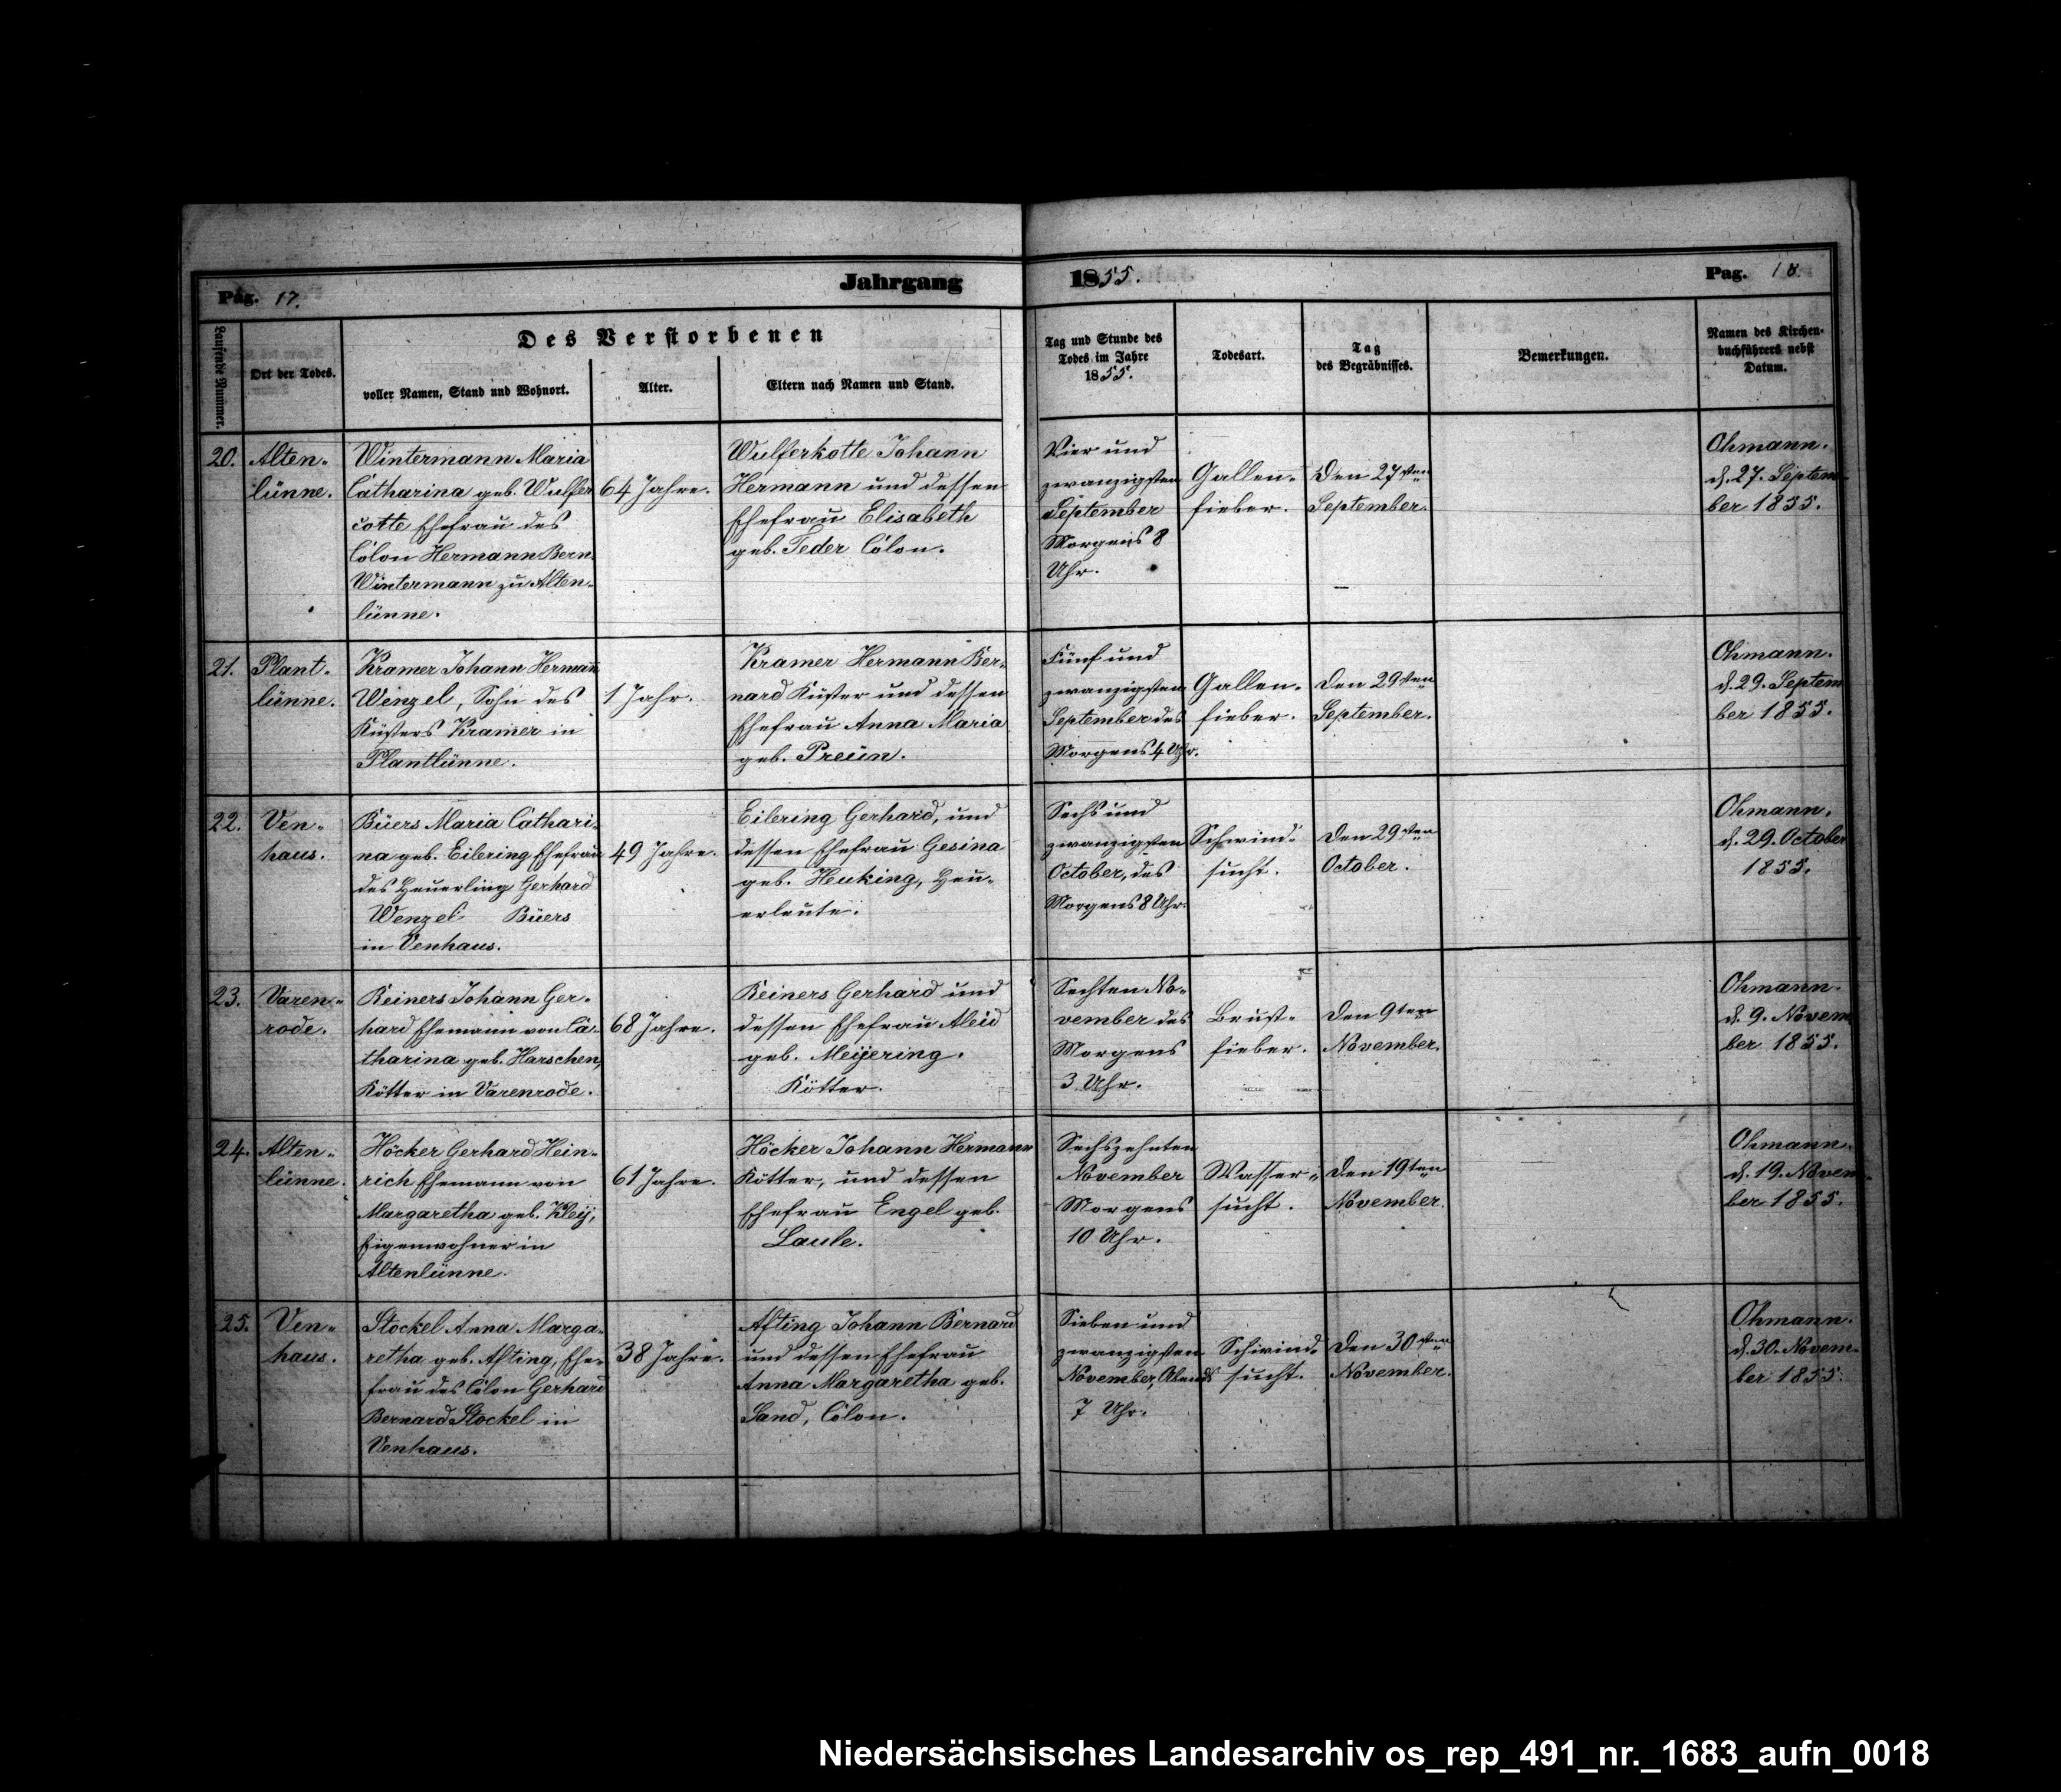 Pag. 17.
Jahrgang
1855.
Pag. 18.
Laufende Nummer.
Ort der Todes.
Des Verstorbenen
voller Namen, Stand und Wohnort.
Alter.
Eltern nach Namen und Stand.
Tag und Stunde des
Todes im Jahre
1855.
Todesart.
Tag
des Begräbnisses.
Bemerkungen.
Namen des Kirchen-
buchführers nebst
Datum.
20.
Alten-
lünne.
Wintermann Maria
Catharina geb. Wulfer
cotte Ehefrau des
Colon Hermann Bern.
Wintermann zu Alten-
lünne.
64 Jahre.
Wulferkotte Johann
Hermann und dessen
Ehefrau Elisabeth
geb. Feder Colon.
Vier und
zwanzigsten
September
Morgens 8
Uhr.
Gallen-
fieber.
Den 27sten
September.
Ohmann.
d. 27. Septem-
ber 1855.
21.
Plant-
lünne.
Kramer Johann Hermann
Wenzel, Sohn des
Küsters Kramer in
Plantlünne.
1 Jahr.
Kramer Hermann Ber-
nard Küster und dessen
Ehefrau Anna Maria
geb. Preun.
Fünf und
zwanzigsten
September des
Morgens 4 Uhr.
Gallen-
fieber.
Den 29sten
September.
Ohmann.
d. 29. Septem
ber 1855.
22.
Ven-
haus.
Büers Maria Cathari-
na geb. Eilering Ehefrau
des Heuerling Gerhard
Wenzel Büers
in Venhaus.
49 Jahre.
Eilering Gerhard, und
dessen Ehefrau Gesina
geb. Heuking, Heu-
erleute.
Sechs und
zwanzigsten
October, des
Morgens 8 Uhr.
Schwind-
sucht.
Den 29sten
October.
Ohmann.
d. 29. October
1855.
23.
Varen-
rode.
Reiners Johann Ger-
hard Ehemann von Ca-
tharina geb. Harschen,
Kötter in Varenrode.
68 Jahre.
Reiners Gerhard und
dessen Ehefrau Aleid
geb. Meijering.
Kötter.
Sechten No-
vember des
Morgens
3 Uhr.
Brust-
fieber.
Den 9ten
November.
Ohmann.
d. 9. Novem
ber 1855.
24.
Alten-
lünne.
Höcker Gerhard Hein-
rich Ehemann von
Margaretha geb. Kleij,
Eigenwohner in
Altenlünne.
61 Jahre.
Höcker Johann Hermann
Kötter, und dessen
Ehefrau Engel geb.
Laule.
Sechszehnten
November
Morgens
10 Uhr.
Wasser-
sucht.
Den 19ten
November.
Ohmann.
d. 19. Novem-
ber 1855.
25.
Ven-
haus.
Stockel Anna Marga-
retha geb. Afting, Ehe-
frau des Colon Gerhard
Bernard Stockel in
Venhaus.
38 Jahre.
Afting Johann Bernard
und dessen Ehefrau
Anna Margaretha geb.
Sand, Colon.
Sieben und
zwanzigsten
November, Abends
7 Uhr.
Schwind-
sucht.
Den 30sten
November.
Ohmann.
d. 30. Novem-
ber 1855.
Niedersächsisches Landesarchiv os_rep_491_nr._1683_aufn_0018